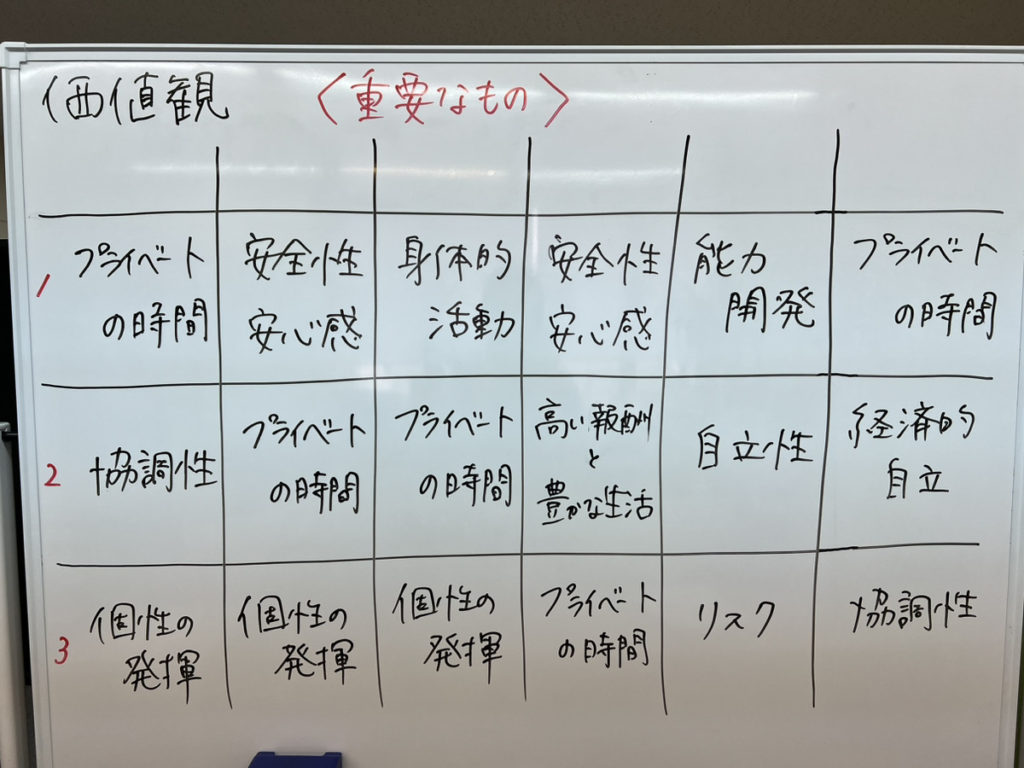 価値観 〈重要なもの〉
1 プライベートの時間 安全性安心感 身体的活動 安全性安心感 能力開発 プライベートの時間
2 協調性 プライベートの時間 プライベートの時間 高い報酬と豊かな生活 自立性 経済的自立
3 個性の発揮 個性の発揮 個性の発揮 プライベートの時間 リスク 協調性